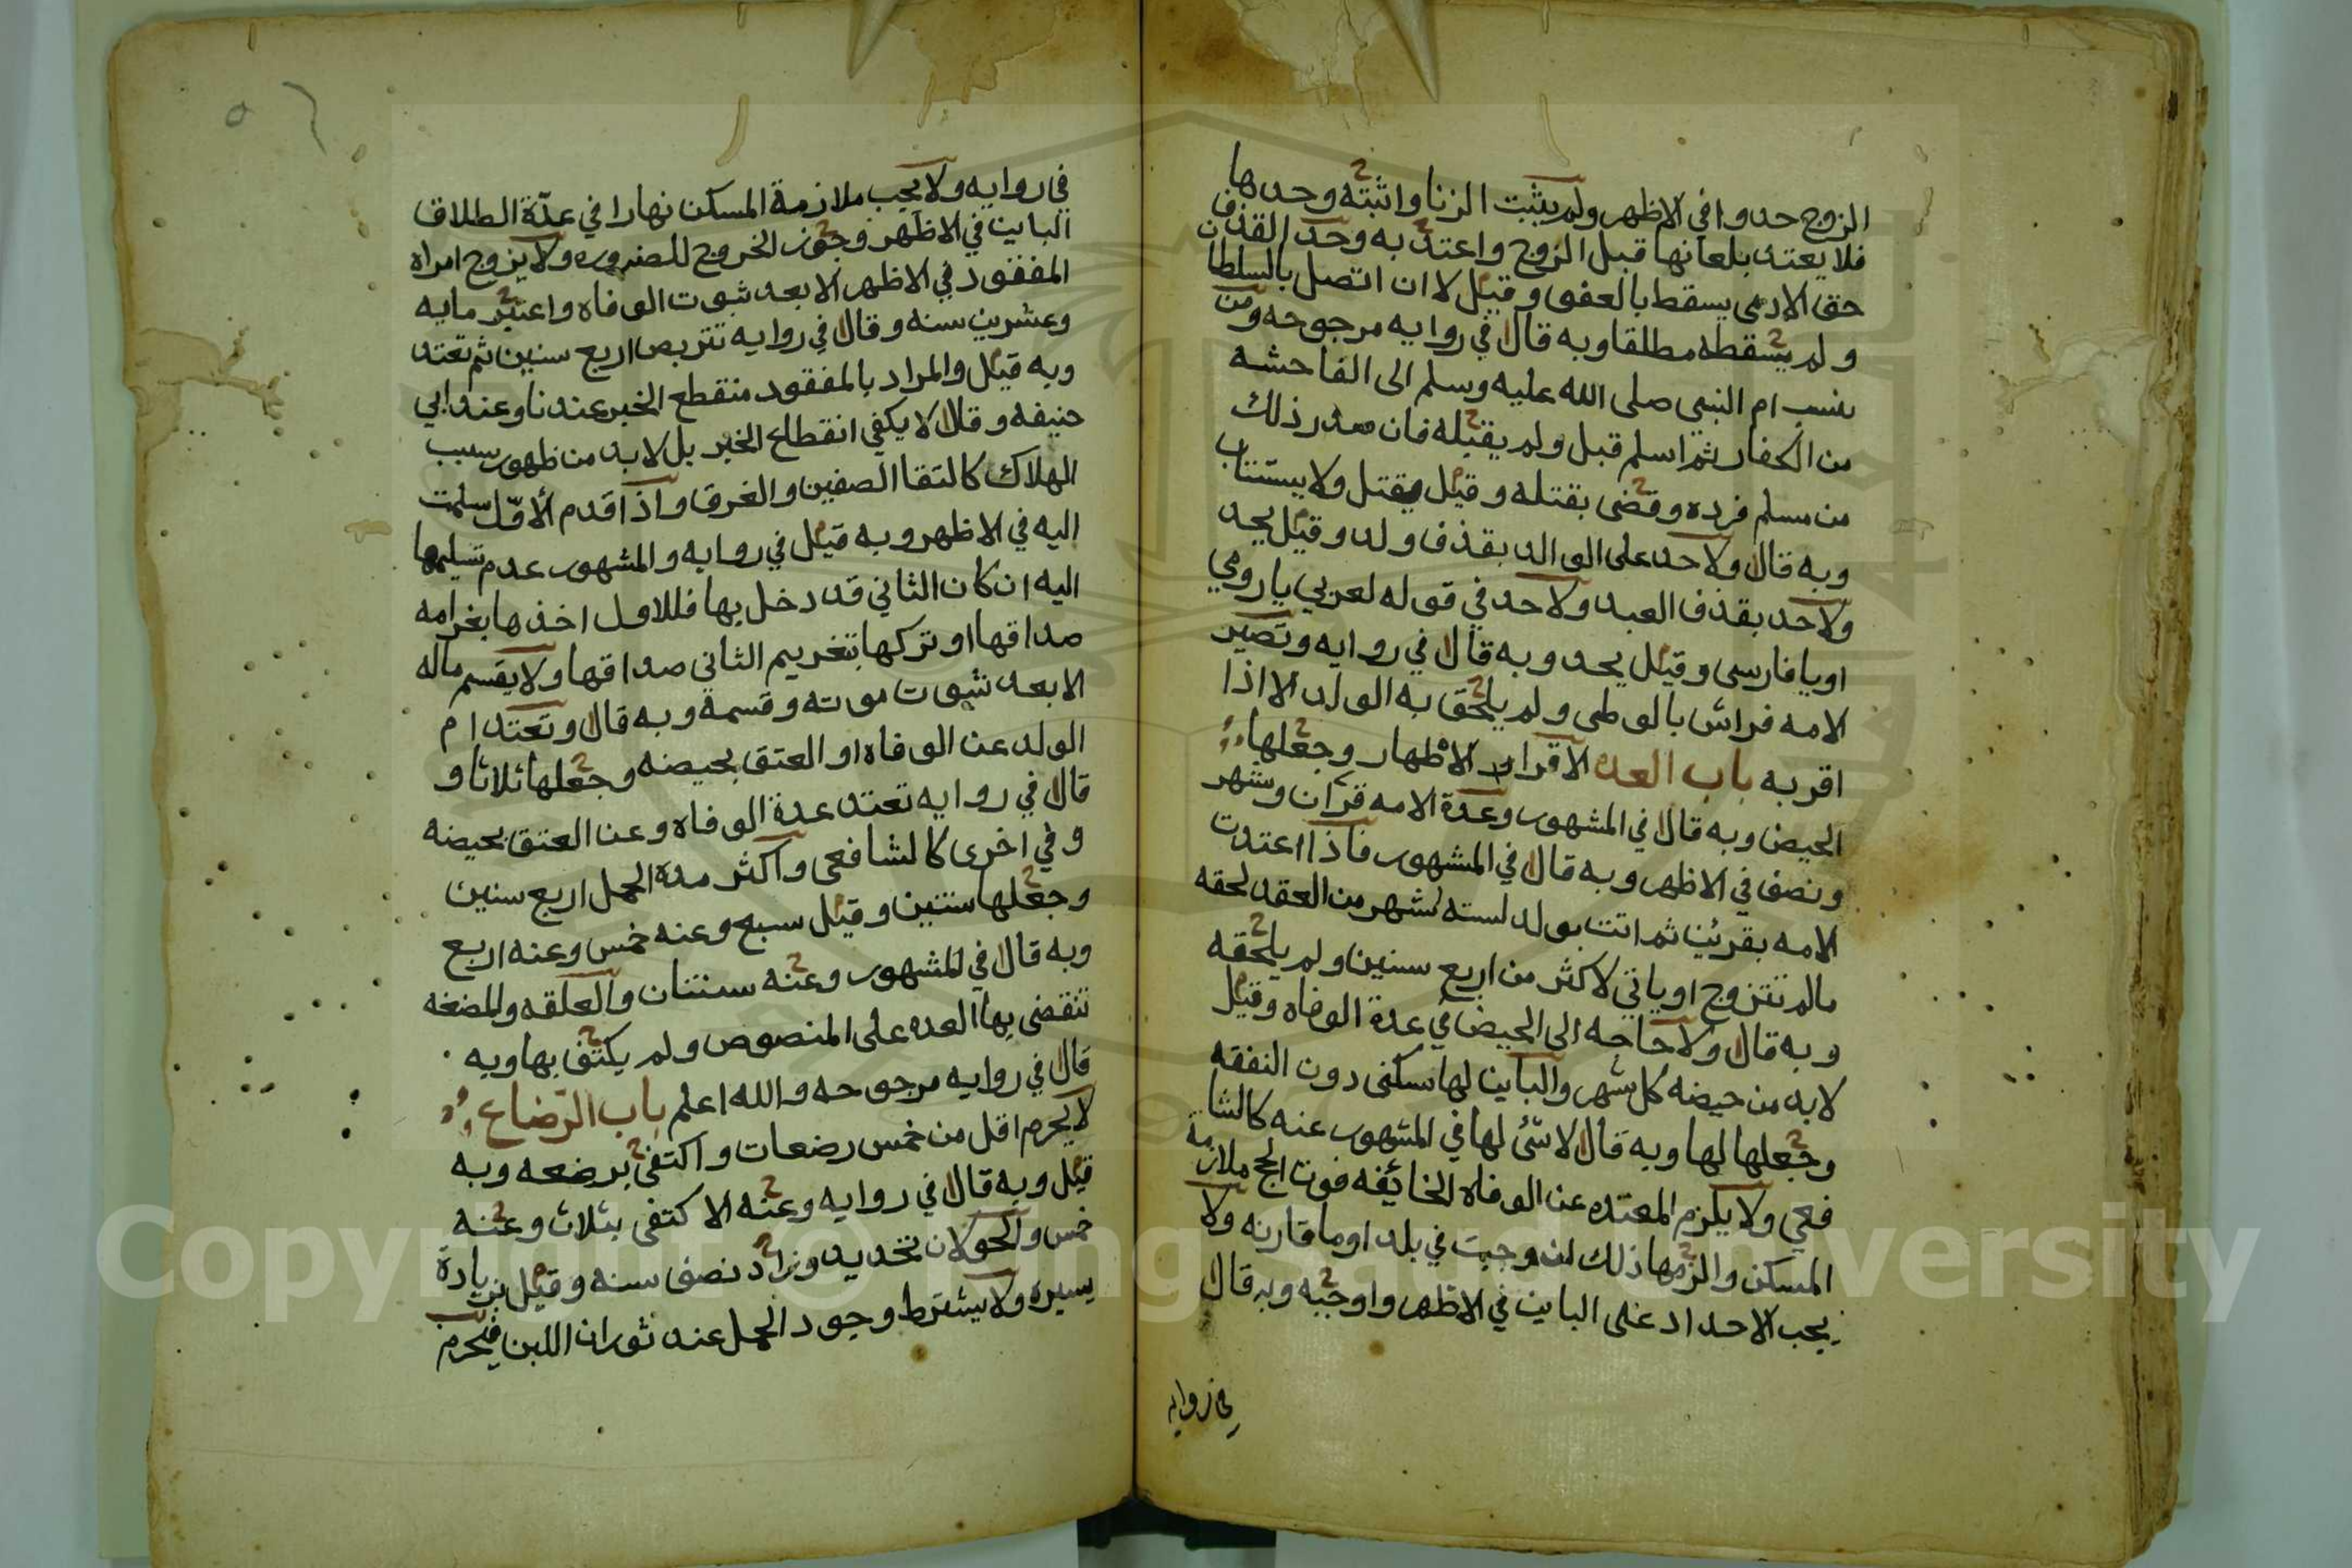 الزوج حدوا في الاظهر ولم يثبت الزنا واثبته وحدها
فلا يعتد بلعانها قبل الزوج واعتد به وحد القذف
حق الادمي يسقط بالعفو وقيل لا ان اتصل بالسلطان
ولم يسقطه مطلقا وبه قال في روايه مرجوحه ومن
نسب ام النبي صلى الله عليه وسلم الى الفاحشه
من الكفار ثم اسلم قبل ولم يقبله فان صدر ذلك
من مسلم فرده وقضى بقتله وقيل يقتل ولا يستتاب
وبه قال ولا حد على الوالد بقذف ولد وقيل يحد
ولا حد بقذف العبد ولا حد في قوله لعربي يا رومي
او يا فارسي وقيل يحد وبه قال في روايه وتصير
الامه فراش بالوطي ولم يلحق به الولد الا اذا
اقر به باب العده الاقراء الاطهار وجعلها
الحيض وبه قال في المشهور وعدة الامه قرآن وشهر
ونصف في الاظهر وبه قال في المشهور فاذا اعتدت
الامه بقرئين ثم اتت بولد لسته اشهر من العقد لحقه
مالم تتزوج او ياتي لاكثر من اربع سنين ولم يلحقه
وبه قال ولا حاجه الى الحيض في عدة الوفاه وقيل
لابد من حيضه كل شهر والباين لها سكنى دون النفقه
وجعلها لها وبه قال لاشئ لها في المشهور عنه كالشا
فعي ولا يلزم المعتده عن الوفاه الخائفه فوت الحج ملازمة
المسكن والزمها ذلك ان وجبت في بلد او ما قاربه ولا
يجب الاحداد على الباين في الاظهر واوجبه وبه قال
في روايه
في روايه ولا يجب ملازمة المسكن نهارا في عدة الطلاق
الباين في الاظهر وجوز الخروج للضروره ولا يزوج امراه
المفقود في الاظهر الا بعد ثبوت الوفاه واعتبر مايه
وعشرين سنه وقال في روايه تتربص اربع سنين ثم تعتد
وبه قيل والمراد بالمفقود منقطع الخبر عندنا وعند ابي
حنيفه وقال لا يكفي انقطاع الخبر بل لابد من ظهور سبب
الهلاك كالتقا الصفين والغرق واذا قدم الأوّل سلمت
اليه في الاظهر وبه قيل في روايه والمشهور عدم تسليمها
اليه ان كان الثاني قد دخل بها فللاول اخذها بغرامه
صداقها او تركها بتغريم الثاني صداقها ولا يقسم ماله
الا بعد ثبوت موته وقسمه وبه قال وتعتد ام
الولد عن الوفاه او العتق بحيضه وجعلها ثلاثا و
قال في روايه تعتد عدة الوفاه وعن العتق بحيضه
وفي اخرى كالشافعي واكثر مدة الحمل اربع سنين
وجعلها سنتين وقيل سبع وعنه خمس وعنه اربع
وبه قال في المشهور وعنه سنتان والعلقه والمضغه
تنقضي بها العده على المنصوص ولم يكتف بها وبه
قال في روايه مرجوحه والله اعلم باب الرضاع
لا يحرم اقل من خمس رضعات واكتفى برضعه وبه
قيل وبه قال في روايه وعنه الاكتفى بثلاث وعنه
خمس والحولان تحديد وزاد نصف سنه وقيل بزيادة
يسيره ولا يشترط وجود الحمل عند ثوران اللبن فيحرم
Copyright © King Saud University